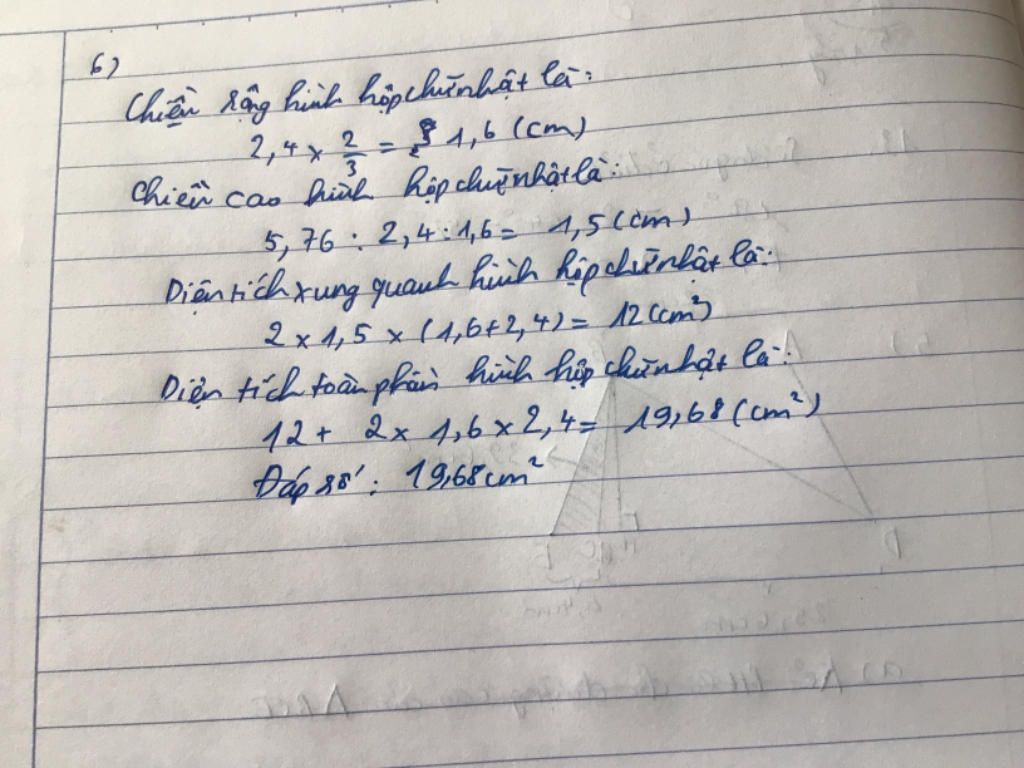 6)
Chiều rộng hình hộp chữ nhật là:
2,4 × 2/3 = 1,6 (cm)
Chiều cao hình hộp chữ nhật là:
5,76 : 2,4 : 1,6 = 1,5 (cm)
Diện tích xung quanh hình hộp chữ nhật là:
2 × 1,5 × (1,6 + 2,4) = 12 (cm²)
Diện tích toàn phần hình hộp chữ nhật là:
12 + 2 × 1,6 × 2,4 = 19,68 (cm²)
Đáp số : 19,68 cm²